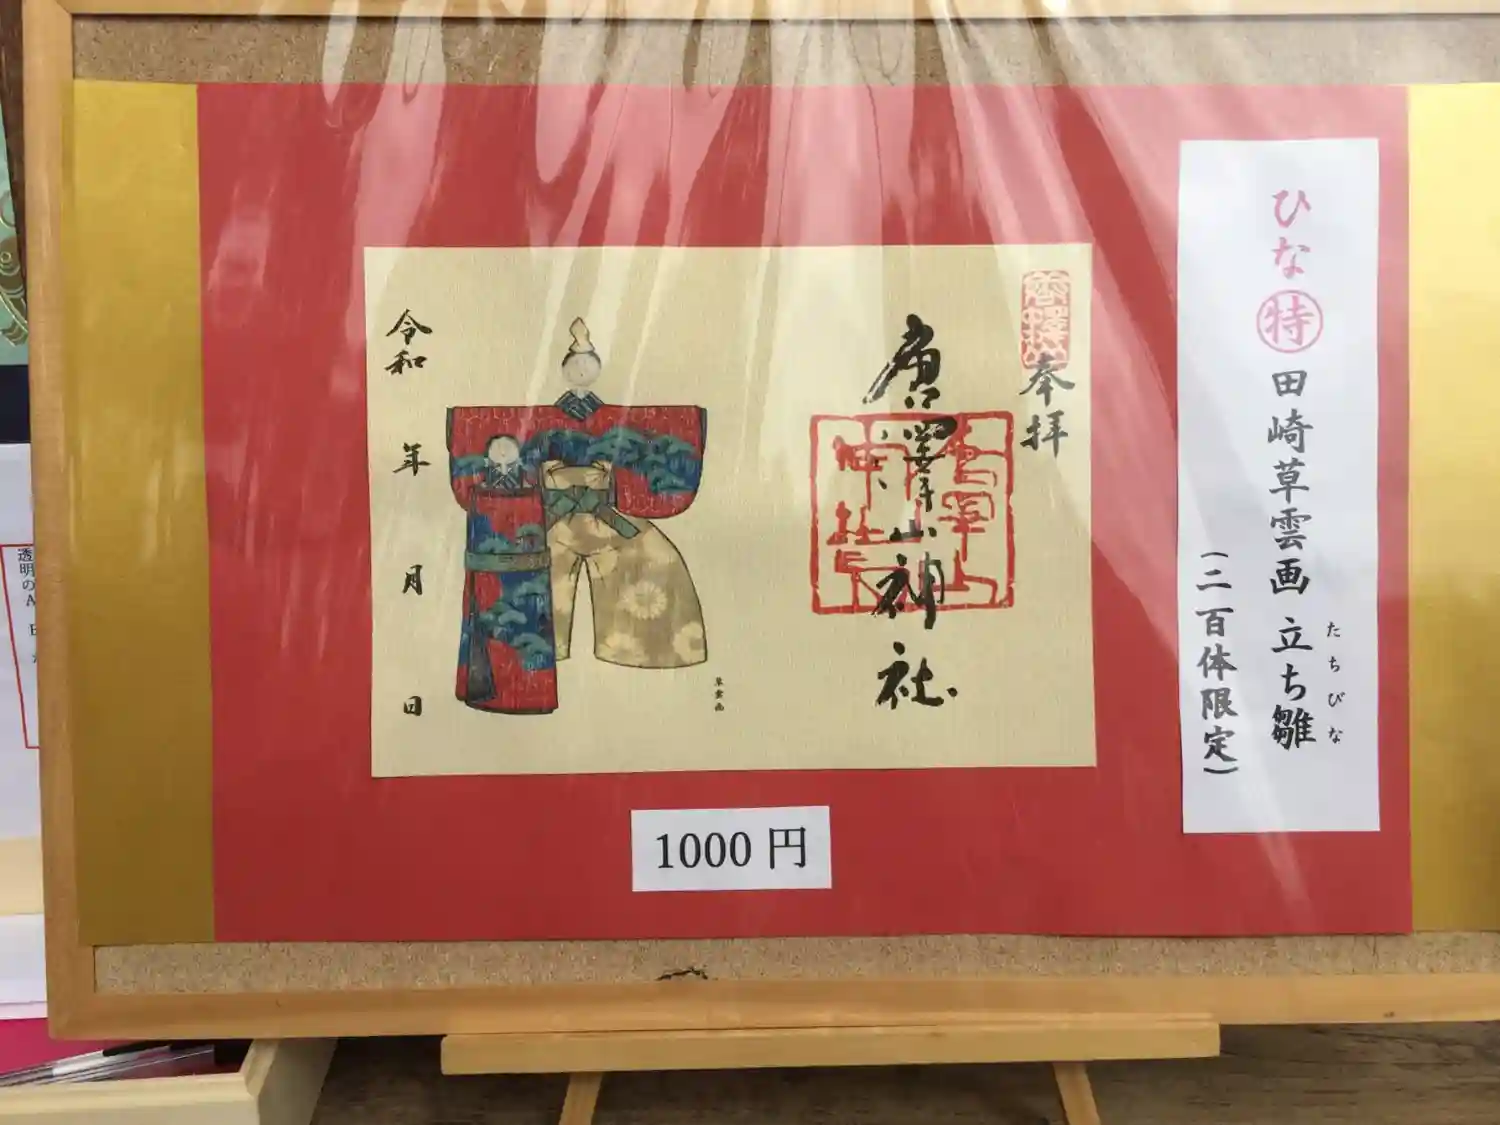 ひな㊕田崎草雲画 立ち雛
たちびな
(二百体限定)
奉拝
唐澤山神社
令和 年 月 日
草雲画
1000 円
透明の